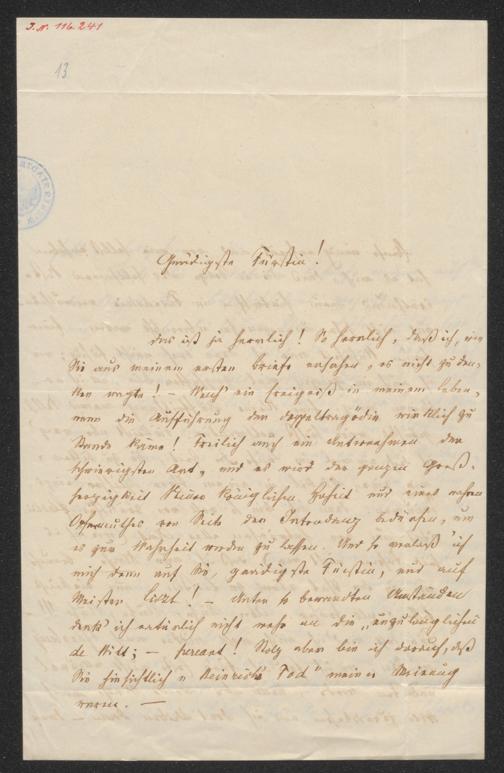 I.N. 116.241
13
Gnädigste Fürstin!
das ist ja herrlich! So herrlich, daß ich, wie
Sie aus meinem ersten Briefe ersahen, es nicht zu den-
ken wagte! – Welch' ein Ereigniß in meinem Leben,
wenn die Aufführung der Doppeltragödie wirklich zu
Stande käme! Freilich auch ein Unternehmen der
schwierigsten Art, und es wird der ganzen Groß-
herzigkeit Seiner Königlichen Hoheit und eines wahren
Opfermuthes von Seite der Intendanz bedürfen, um
es zur Wahrheit werden zu lassen. Und so verlaß' ich
mich denn auf Sie, gnädigste Fürstin, und auf
Meister Liszt! – Unter so bewandten Umständen
denk' ich natürlich nicht mehr an die „unzulänglichen
de Witt; – pereant! Stolz aber bin ich darauf, daß
Sie hinsichtlich „Heinrichs Tod" meiner Meinung
waren. –